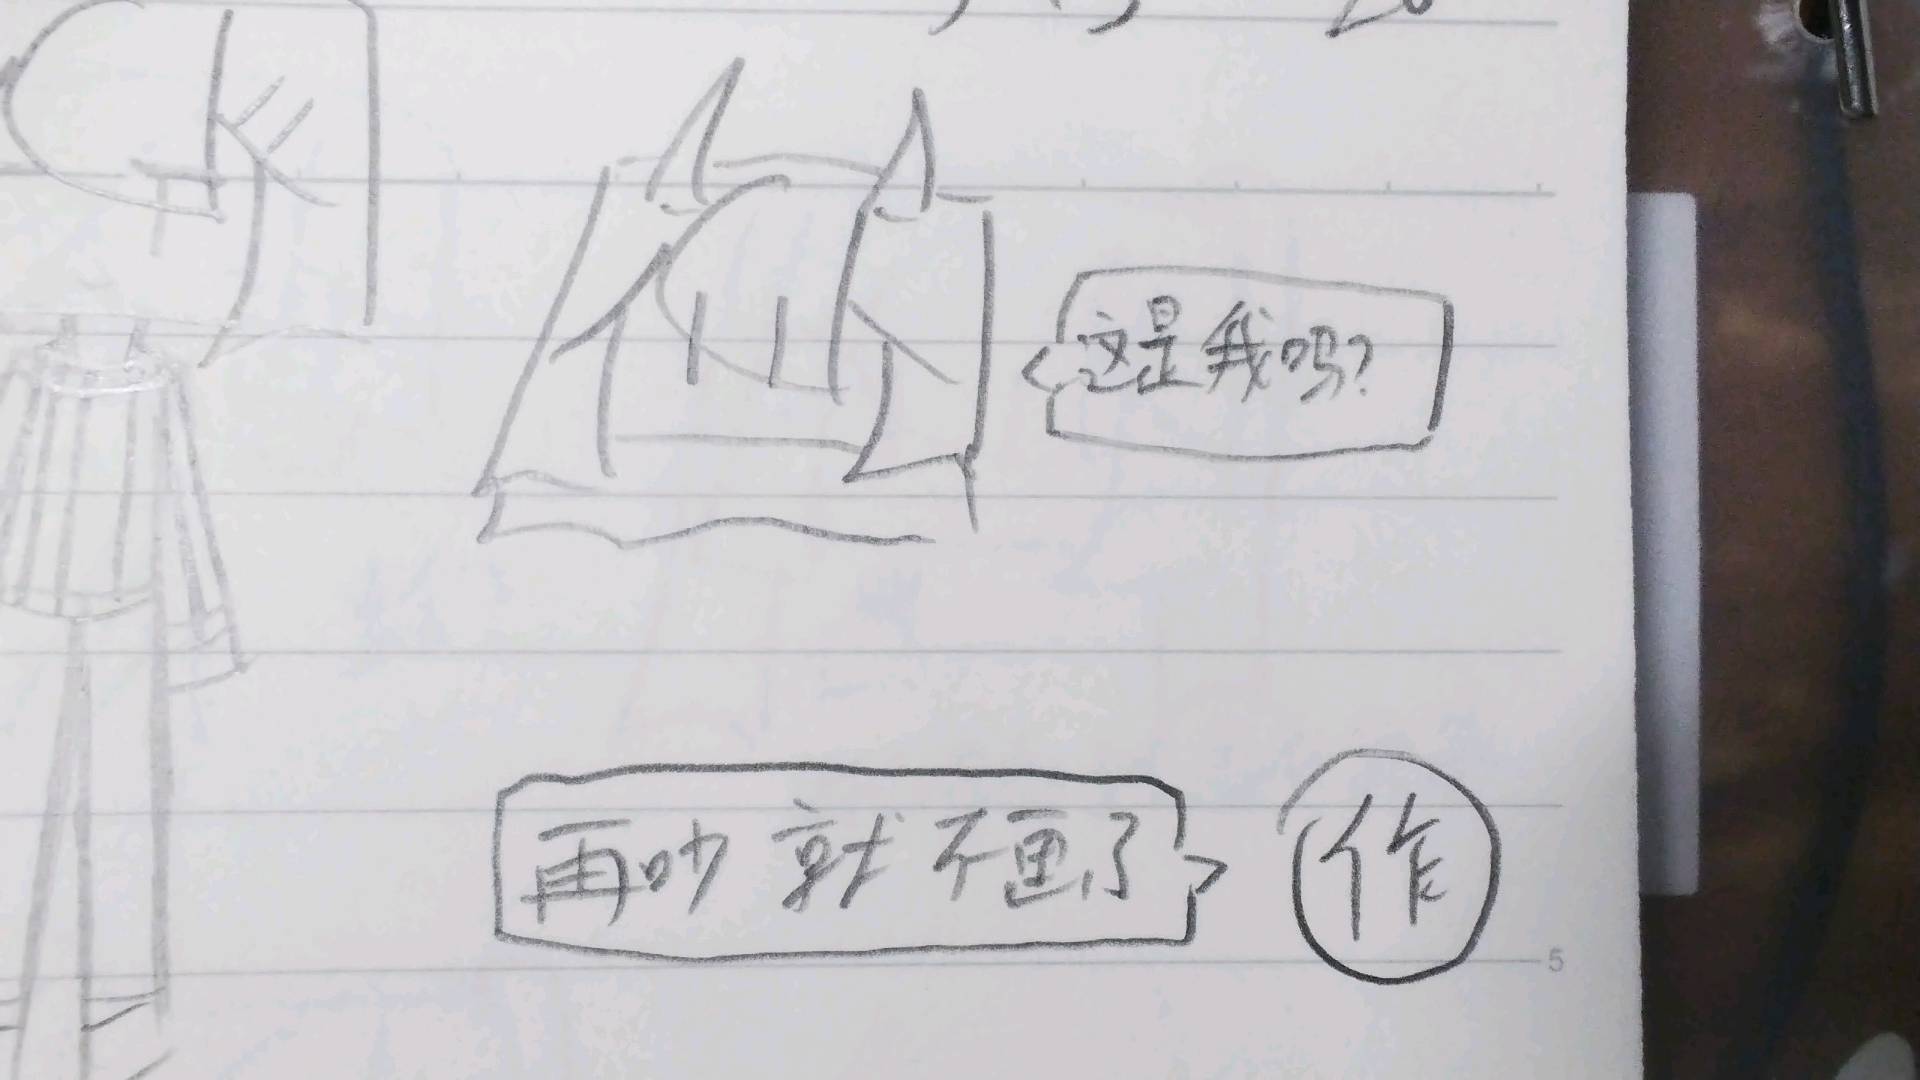 这是我吗?
再吵就不画了
作
5